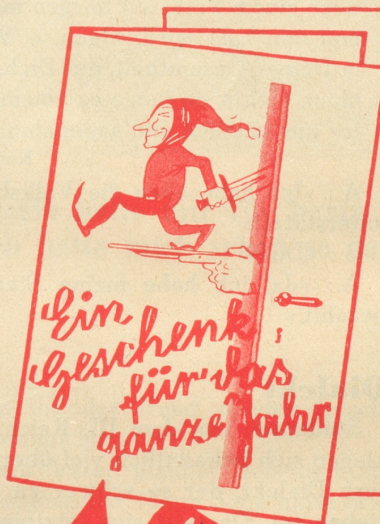 Ein
Geschenk
für das
ganze Jahr